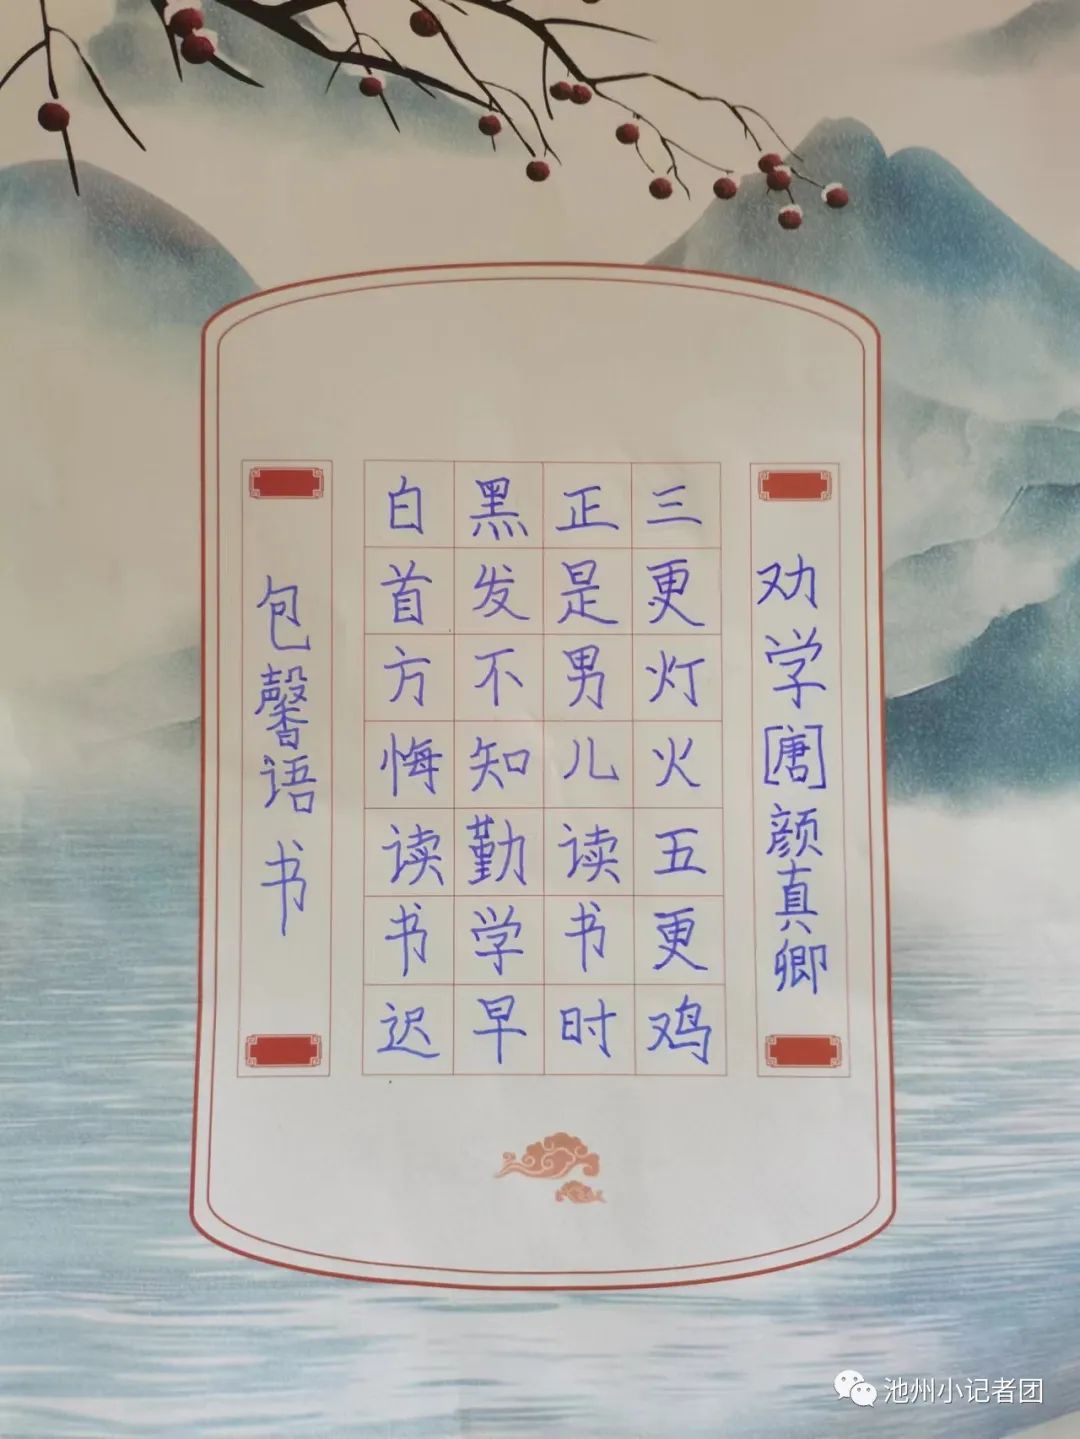 劝学[唐]颜真卿
三更灯火五更鸡
正是男儿读书时
黑发不知勤学早
白首方悔读书迟
包馨语书
池州小记者团